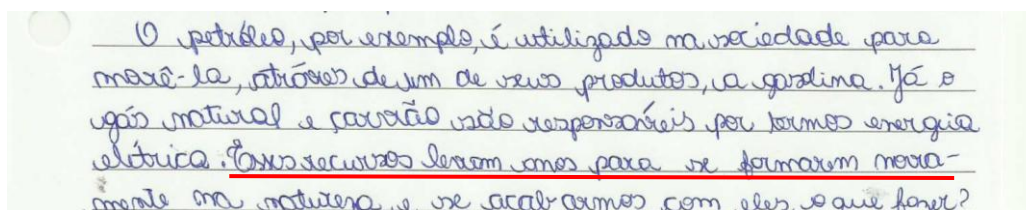 O petróleo, por exemplo, é utilizado na sociedade para
movê-la, através de um de seus produtos, a gasolina. Já o
gás natural e carvão são responsáveis por termos energia
elétrica. Esses recursos levam anos para se formarem nova-
mente na natureza, e se acabarmos com eles, o que fazer?